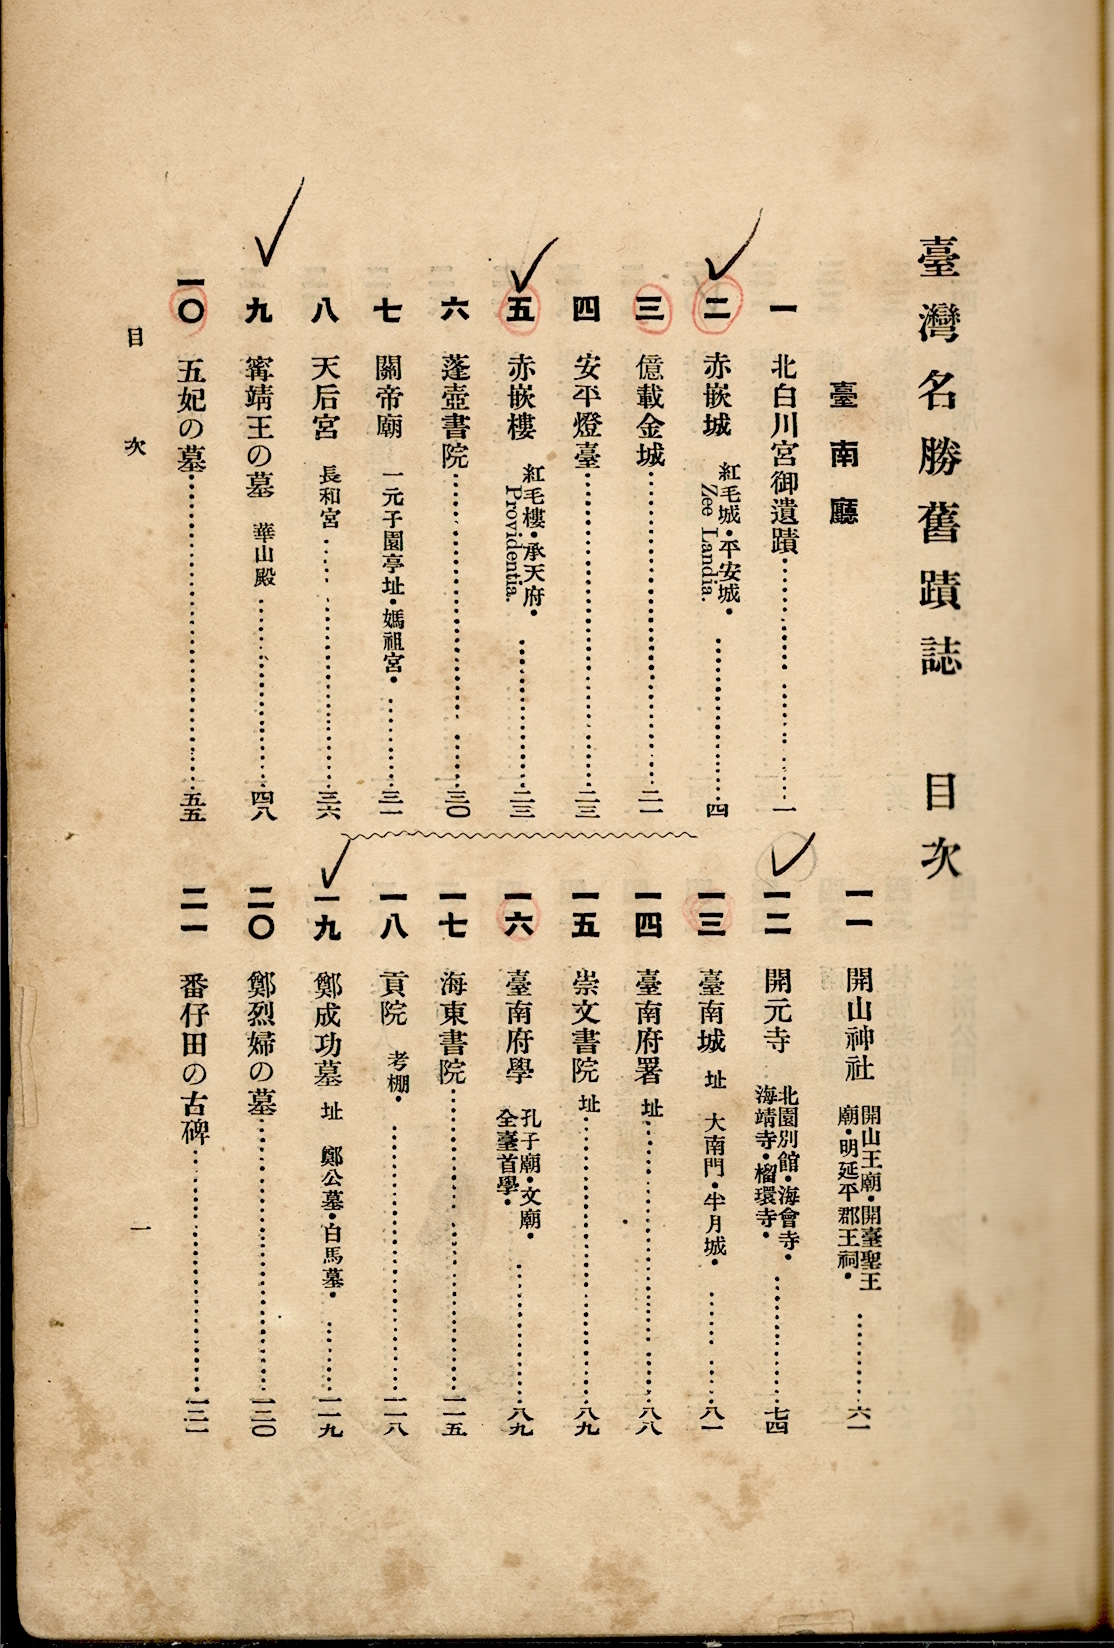 臺灣名勝舊蹟誌 目次
臺南廳
一 北白川宮御遺蹟…………一
二 赤嵌城 紅毛城・平安城・Zee Landia.…………四
三 億載金城…………二一
四 安平燈臺…………二三
五 赤嵌樓 紅毛樓・承天府・Providentia.…………二三
六 蓬壺書院…………三〇
七 關帝廟 一元子園亭址・媽祖宮・…………三一
八 天后宮 長和宮…………三六
九 寗靖王の墓 華山殿…………四八
一〇 五妃の墓…………五五
一一 開山神社 開山王廟・開臺聖王廟・明延平郡王祠・…………六一
一二 開元寺 北園別館・海會寺・海靖寺・榴環寺・…………七四
一三 臺南城址 大南門・半月城・…………八一
一四 臺南府署址…………八八
一五 崇文書院址…………八九
一六 臺南府學 孔子廟・文廟・全臺首學・…………八九
一七 海東書院…………一一五
一八 貢院 考棚・…………一一八
一九 鄭成功墓址 鄭公墓・白馬墓・…………一一九
二〇 鄭烈婦の墓…………一二〇
二一 番仔田の古碑…………一二一
目次 一